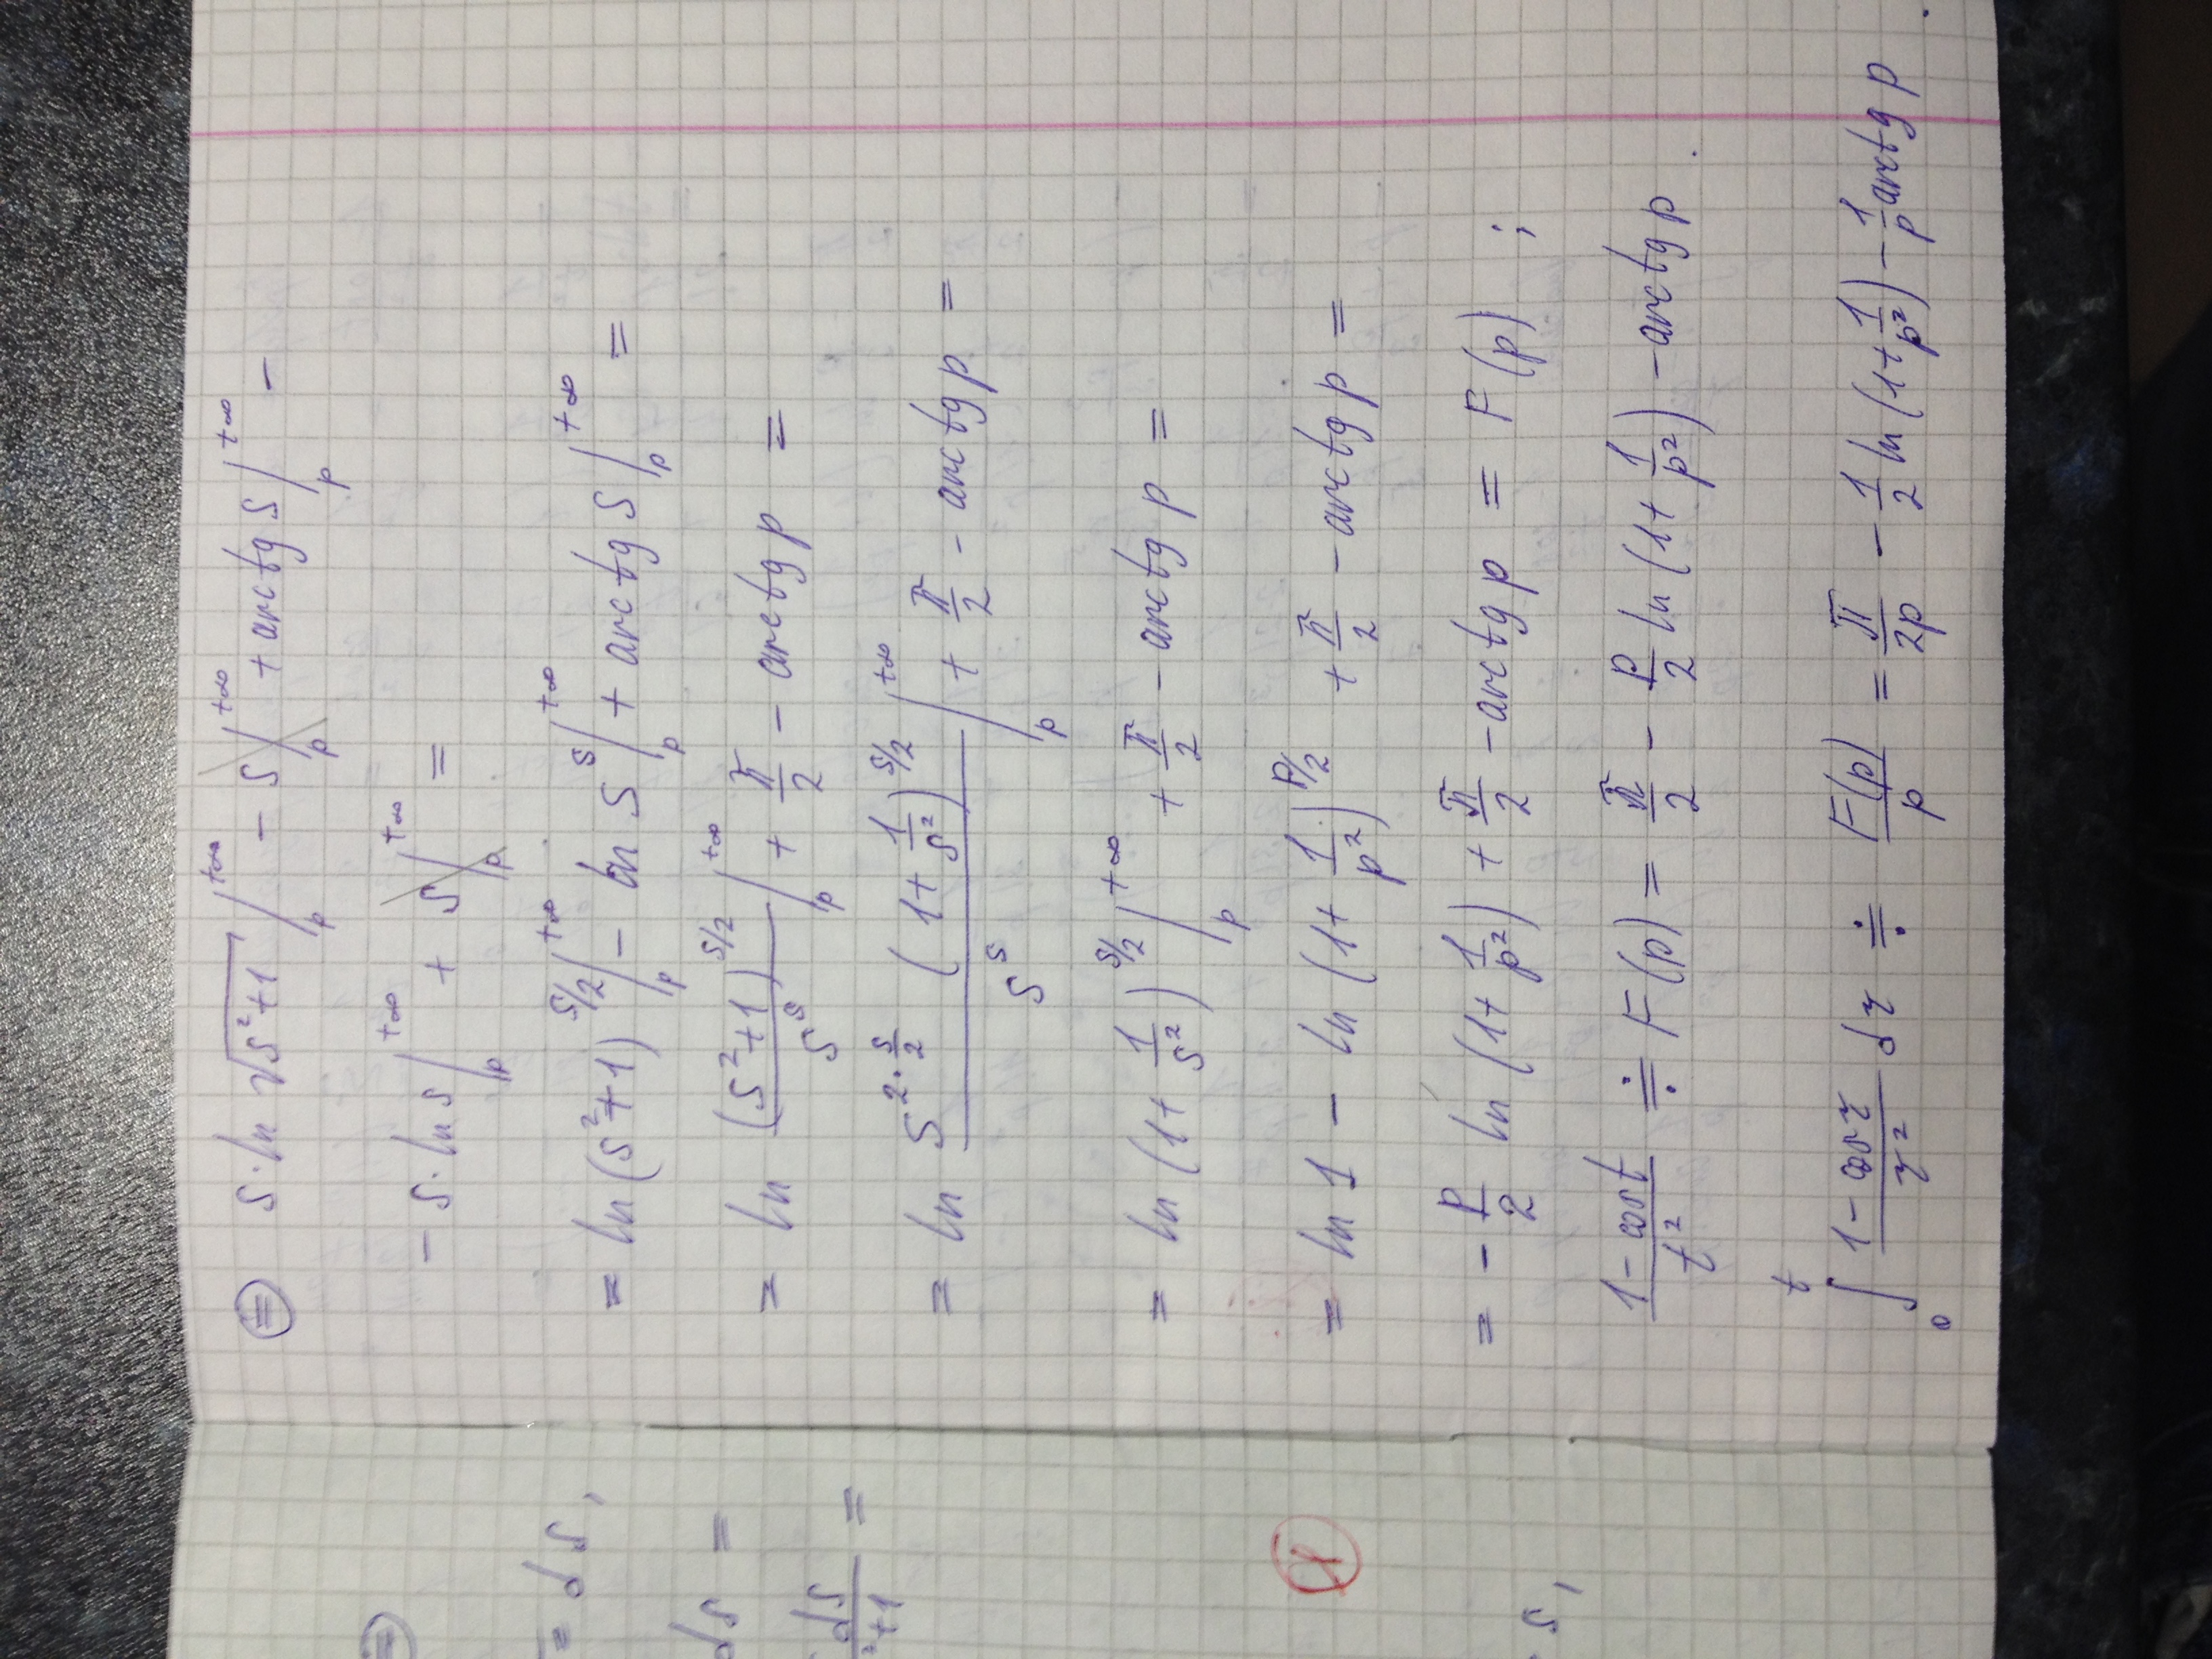 = dS,
dS =
dS / ²+1 =
S,
⊜ S·ln √(S²+1) |ₚ^{+∞} − S |ₚ^{+∞} + arctg S |ₚ^{+∞} −
− S·ln S |ₚ^{+∞} + S |ₚ^{+∞} =
= ln (S²+1)^{S/2} |ₚ^{+∞} − ln S^S |ₚ^{+∞} + arctg S |ₚ^{+∞} =
= ln (S²+1)^{S/2} / S^S |ₚ^{+∞} + π/2 − arctg p =
= ln S^{2·S/2} (1+ 1/S²)^{S/2} / S^S |ₚ^{+∞} + π/2 − arctg p =
= ln (1+ 1/S²)^{S/2} |ₚ^{+∞} + π/2 − arctg p =
= ln 1 − ln (1+ 1/p²)^{p/2} + π/2 − arctg p =
= − p/2 ln (1+ 1/p²) + π/2 − arctg p = F(p);
1−cos t / t² ≑ F(p) = π/2 − p/2 ln (1+ 1/p²) − arctg p.
∫₀^t 1−cos τ / τ² dτ ≑ F(p)/p = π/2p − 1/2 ln (1+ 1/p²) − 1/p arctg p.